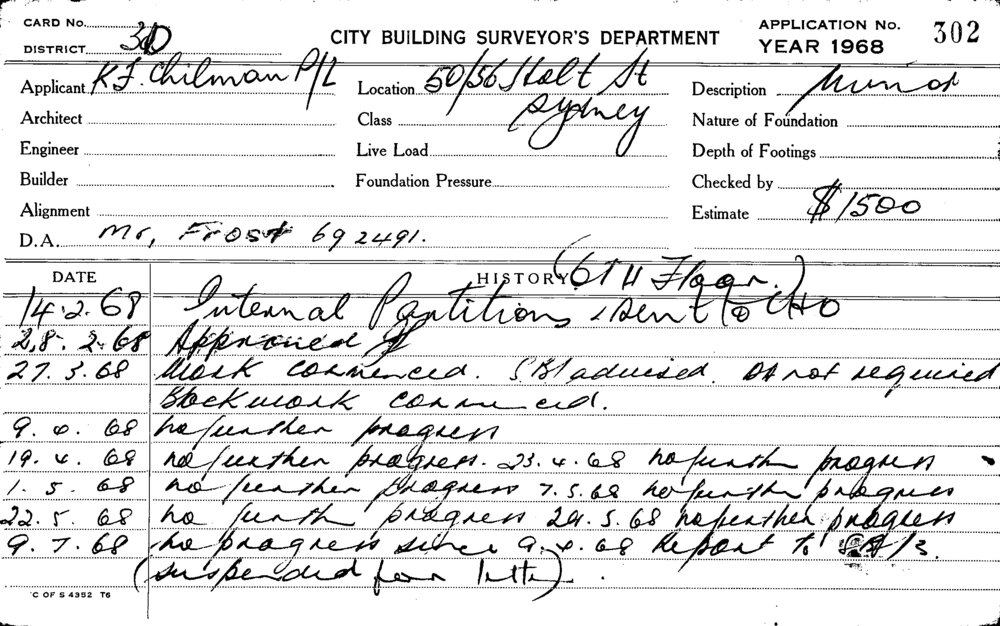 CARD No.
DISTRICT 3D
CITY BUILDING SURVEYOR'S DEPARTMENT
APPLICATION No. 302
YEAR 1968
Applicant K.F. Chilman P/L
Location 50/56 Holt St
Sydney
Description Minor
Architect
Class
Nature of Foundation
Engineer
Live Load
Depth of Footings
Builder
Foundation Pressure
Checked by
Alignment
Estimate $1500
D.A. Mr. Frost 692491.
DATE HISTORY (6TH Floor.)
14.2.68 Internal Partitions, sent to CHO
28.2.68 Approved
27.3.68 Work commenced. SBI advised. DA not required
Blockwork commenced.
9.4.68 no further progress
19.4.68 no further progress. 23.4.68 no furth progress
1.5.68 no further progress 7.5.68 no further progress
22.5.68 no furth progress 29.5.68 no further progress
9.7.68 no progress since 9.4.68 Report to
(suspended for letter).
C OF S 4352 T6